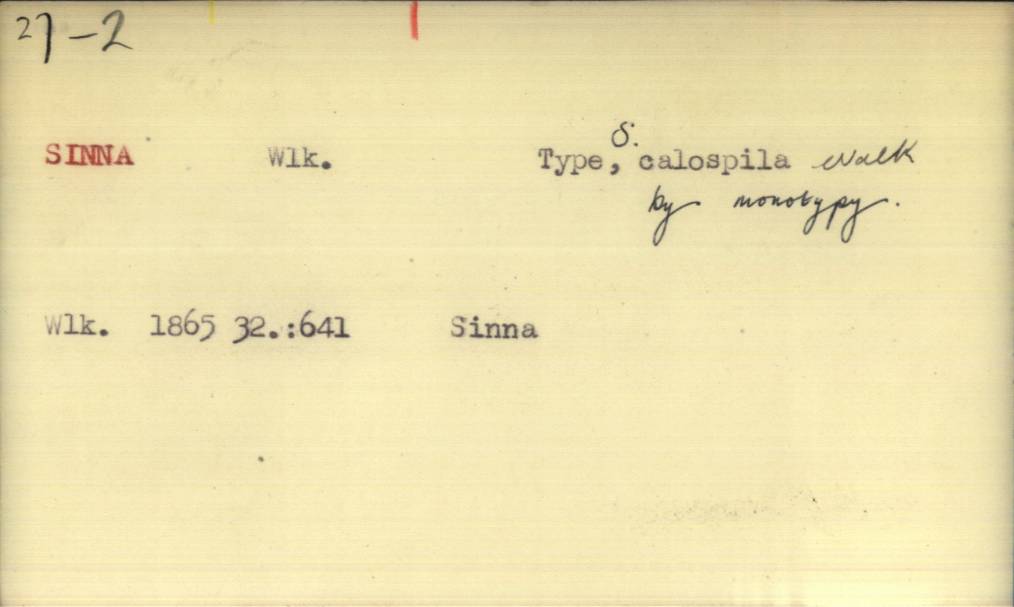 27-2
SINNA Wlk. Type, S. calospila Walk
by monotypy.
Wlk. 1865 32.:641 Sinna